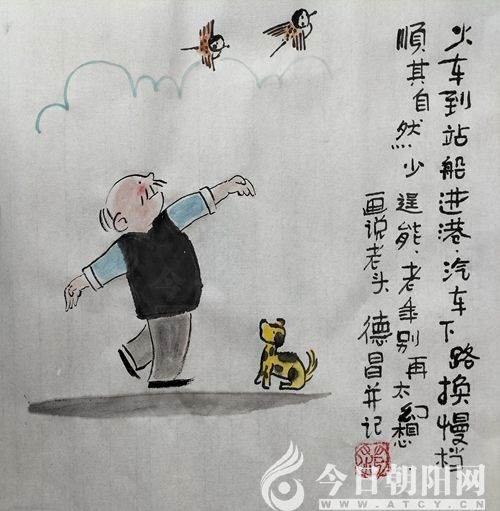 火车到站船进港.汽车下路换慢档
順其自然少逞能.老年别再太幻想
画说老头 德昌并记
今日朝阳网
WWW.ATCY.CN